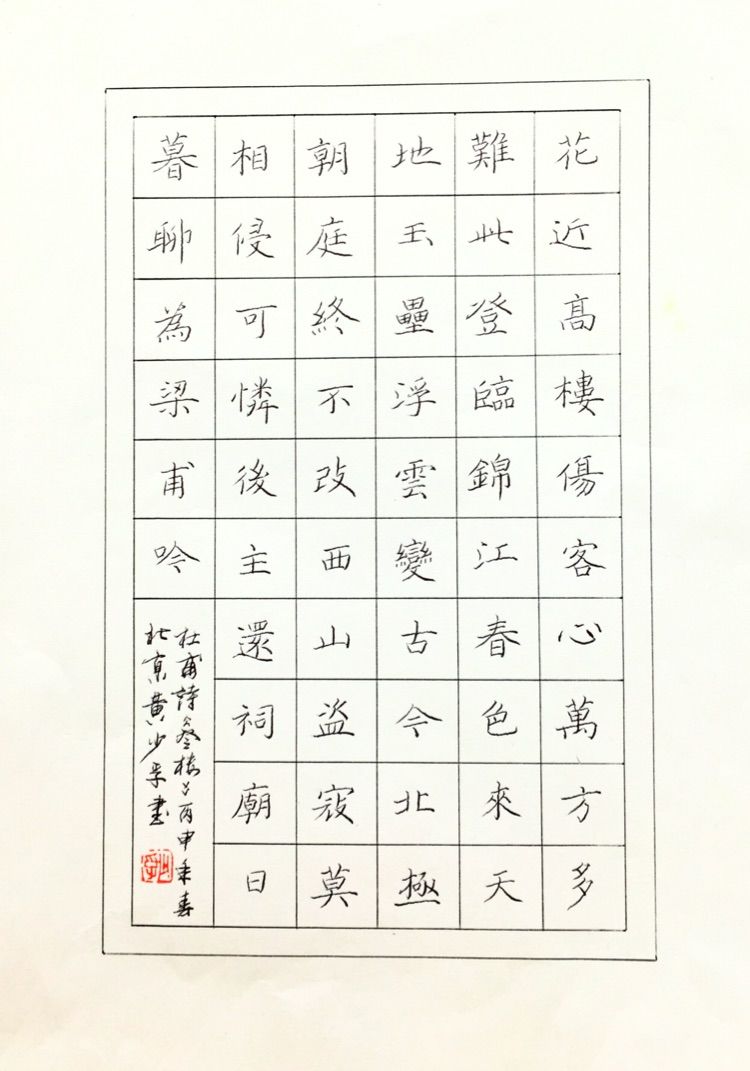 花近高樓傷客心萬方多
難此登臨錦江春色來天
地玉壘浮雲變古今北極
朝庭終不改西山盜寇莫
相侵可憐後主還祠廟日
暮聊為梁甫吟
杜甫詩《登樓》丙申年春
北京黃少年書